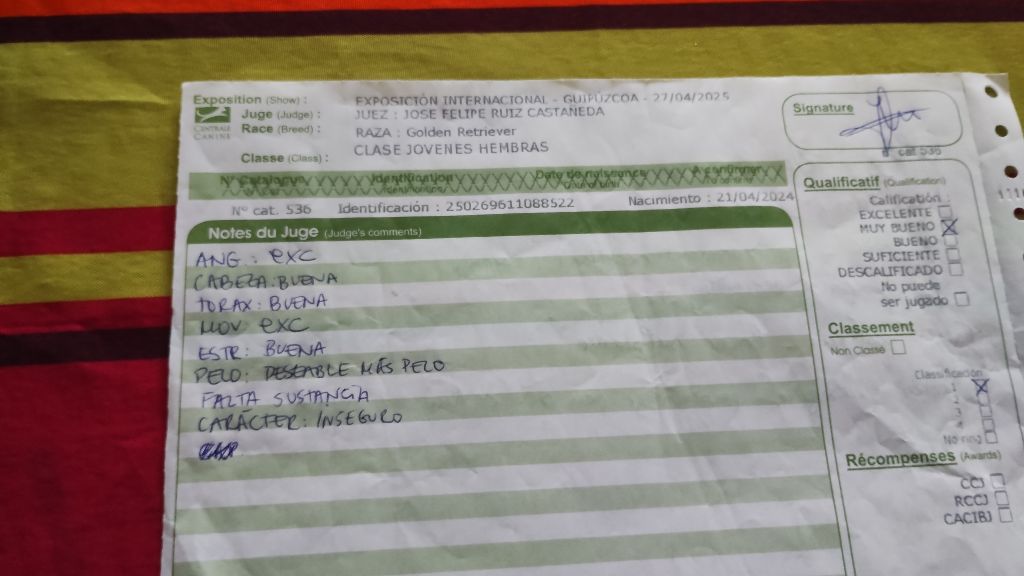 Exposition (Show) : EXPOSICIÓN INTERNACIONAL - GUIPUZCOA - 27/04/2025
Juge (Judge) : JUEZ : JOSE FELIPE RUIZ CASTAÑEDA
CENTRALE CANINE
Race (Breed) : RAZA : Golden Retriever
Classe (Class) : CLASE JOVENES HEMBRAS
Signature
cat. 536
N° Catalogue Identification Date de naissance A confirmer
Nº cat. 536 Identificación : 250269611088522 Nacimiento : 21/04/2024
Notes du Juge (Judge's comments)
ANG. : EXC
CABEZA: BUENA
TORAX: BUENA
MOV EXC
ESTR: BUENA
PELO: DESEABLE MÁS PELO
FALTA SUSTANCIA
CARÁCTER: INSEGURO
Qualificatif (Qualification)
Calificación :
EXCELENTE
MUY BUENO
BUENO
SUFICIENTE
DESCALIFICADO
No puede
ser jugado
Classement
Non Classé
Clasificación
1
2
3
4
No ring
Récompenses (Awards)
CCJ
RCCJ
CACIBJ